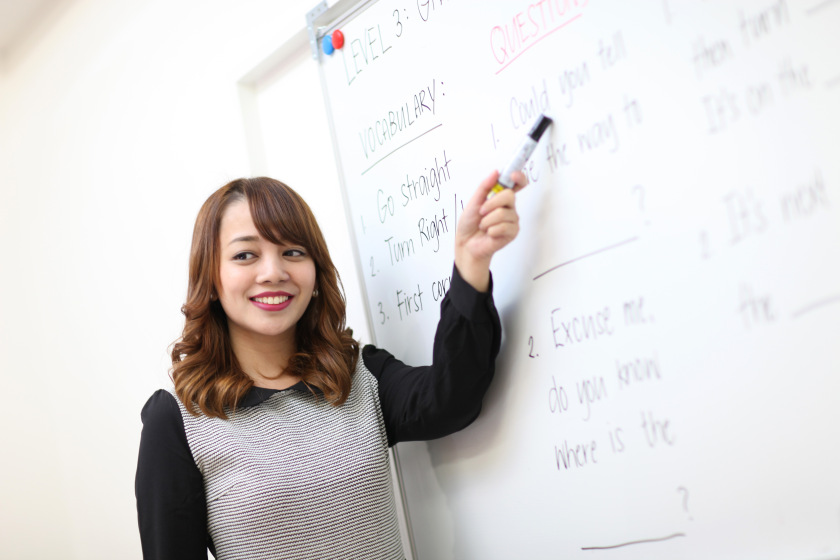 LEVEL 3:
VOCABULARY:
1. Go straight
2. Turn Right /
3. First
QUESTION
1. Could you tell
the way to
?
2. Excuse me.
do you know
where is the
?
then turn
It's on the
2. It's next
the